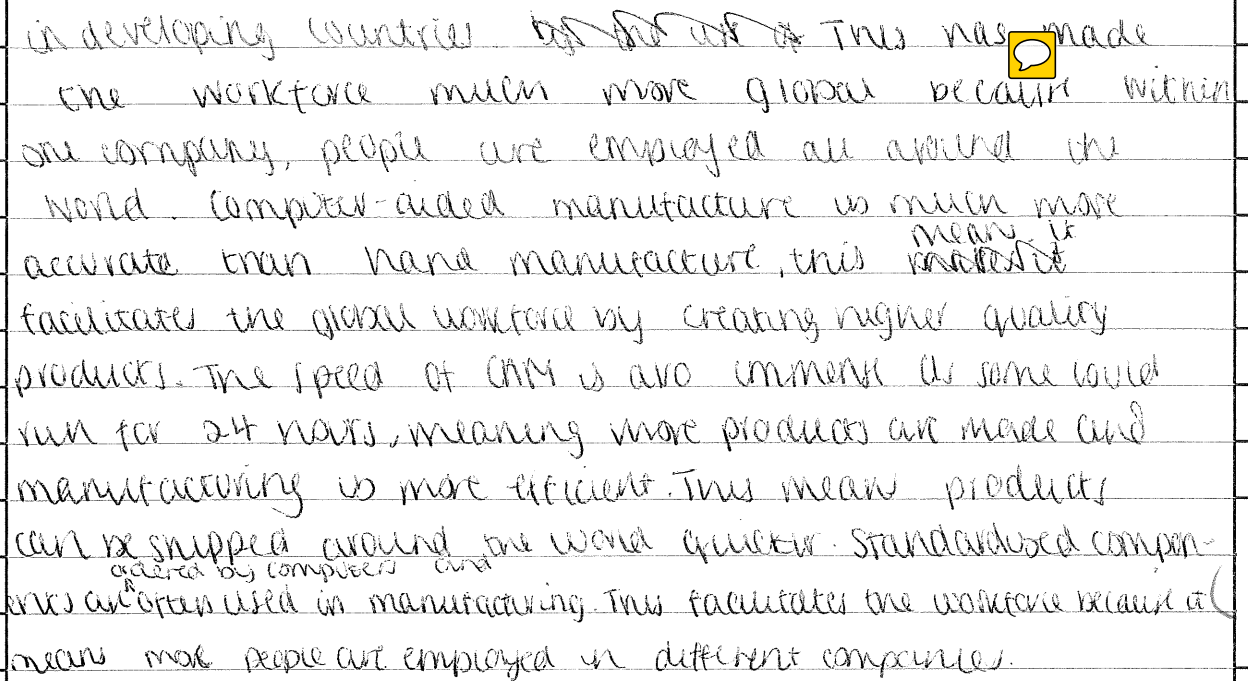 in developing countries This has made
the workforce much more global because within
one company, people are employed all around the
world. Computer-aided manufacture is much more
accurate than hand manufacture, this means it
facilitates the global workforce by creating higher quality
products. The speed of CAM is also immense as some could
run for 24 hours, meaning more products are made and
manufacturing is more efficient. This means products
can be shipped around the world quicker. Standardised compon-
ents are ordered by computers and often used in manufacturing. This facilitates the workforce because it
means more people are employed in different companies.